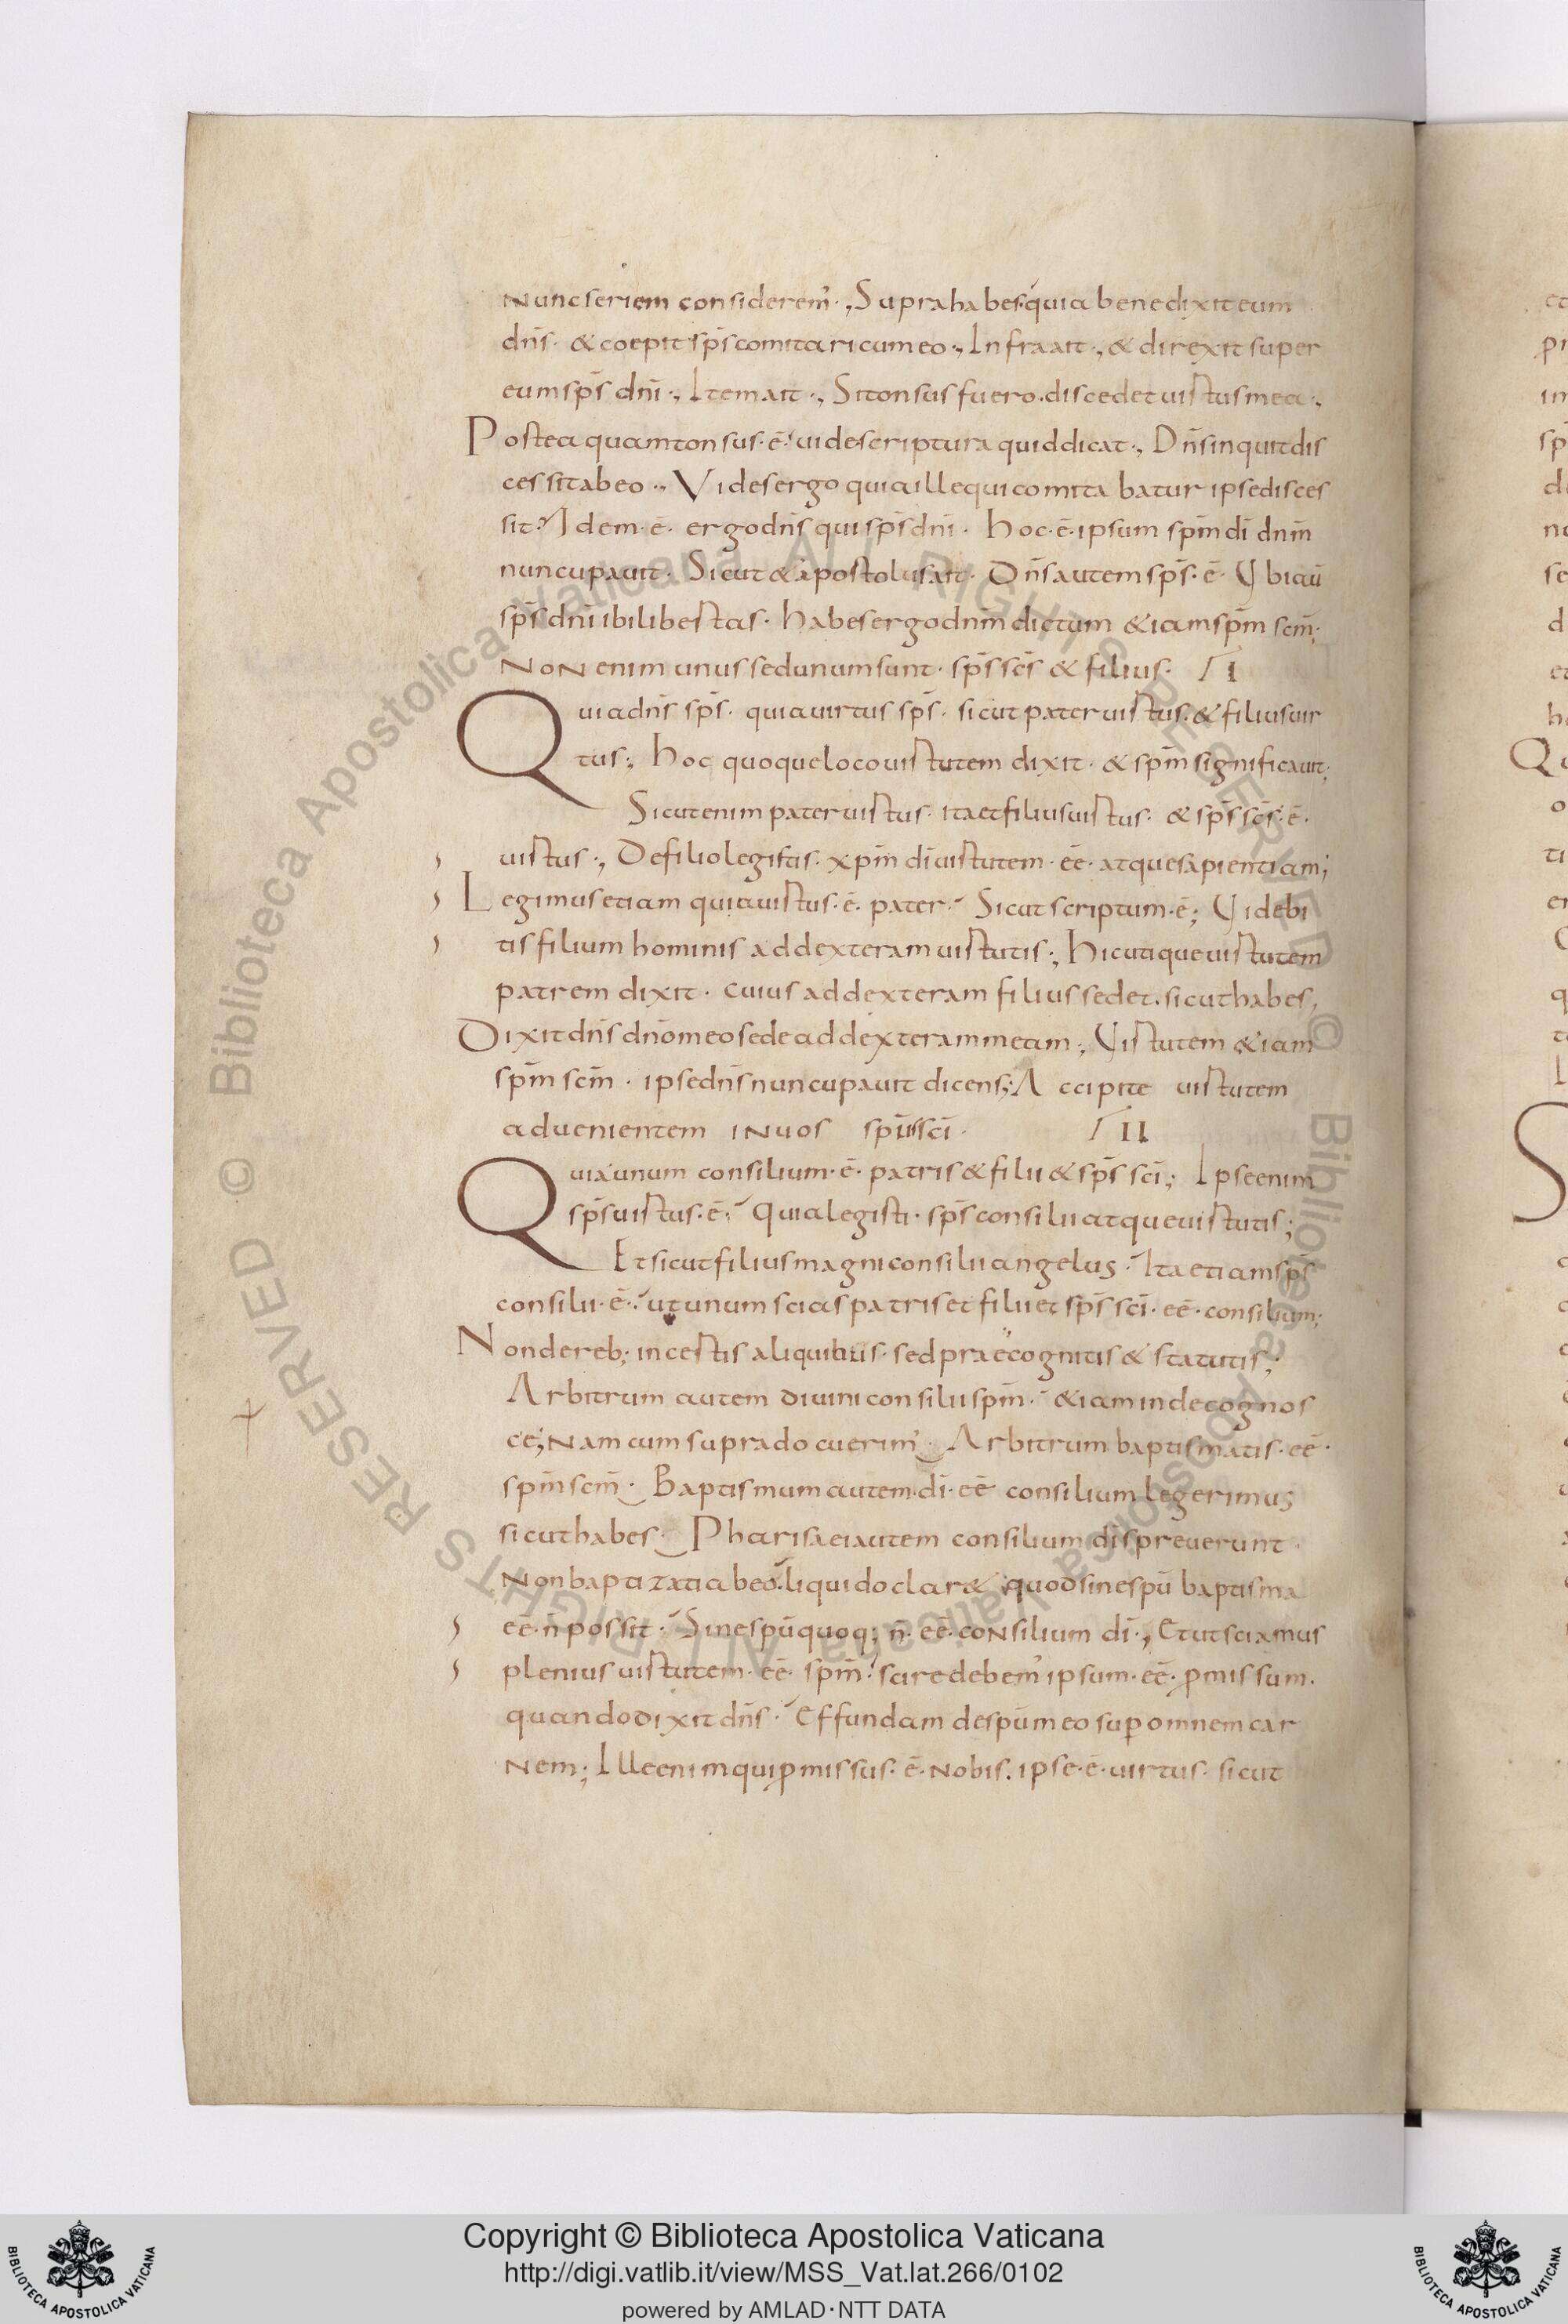 Nunc seriem considerem'., Supra habes quia benedixit eum
dn̄s · & coepit sp̄s comitari cum eo ., Infra ait ., & direxit super
eum sp̄s dn̄i ., Item ait ., Si tonsus fuero · discedet uirtus mea .,
Postea quam tonsus · ē · uide scriptura quid dicat ., Dn̄s inquit dis
cessit ab eo ., Vides ergo quia ille qui comitabatur ipse disces
sit? Idem · ē · ergo dn̄s qui sp̄s dn̄i · hoc · ē · ipsum sp̄m dī dnm̄
nuncupauit · Sicut & apostolus ait · Dn̄s autem sp̄s · ē · Ubi aū
sp̄s dn̄i ibi libertas · habes ergo dnm̄ dictum & iam sp̄m scm̄;
Non enim unus sed unum sunt · sp̄s scs̄ & filius · I
Quia dn̄s sp̄s · quia uirtus sp̄s · sicut pater uirtus · & filius uir
tus ; hoc quoque loco uirtutem dixit · & sp̄m significauit;
Sicut enim pater uirtus · ita et filius uirtus · & sp̄s scs̄ · ē ·
uirtus ., De filio legistis · xpm̄ dī uirtutem · eē · atque sapientiam;
Legimus etiam quia uirtus · ē · pater · Sicut scriptum · ē ; Uidebi
tis filium hominis ad dexteram uirtutis ; hic utique uirtutem
patrem dixit · cuius ad dexteram filius sedet · sicut habes,
Dixit dn̄s dn̄o meo sede ad dexteram meam ., Uirtutem & iam
sp̄m scm̄ · ipse dn̄s nuncupauit dicens; Accipite uirtutem
aduenientem in uos sp̄us scī · II
Quia unum consilium · ē · patris & filii & sp̄s scī ; Ipse enim
sp̄s uirtus · ē · Quia legisti · sp̄s consilii atque uirtutis ;
Et sicut filius magni consilii angelus · Ita etiam sp̄s
consilii · ē · ut unum scias patris et filii et sp̄s scī · eē · consilium;
Non de reb; incertis aliquibus · sed praecognitis & statutis ;
Arbitrum autem diuini consilii sp̄m · & iam inde cognos
ce; Nam cum supra docuerim' · Arbitrum baptismatis · eē ·
sp̄m scm̄ · Baptismum autem · dī · eē consilium legerimus
sicut habes · Pharisaei autem consilium dī spreuerunt ·
Non baptizati ab eo · liquido clar& quod sine sp̄u baptisma
eē · n̄ possit · Sine sp̄u quoq; n̄ · eē · consilium dī ., Et ut sciamus
plenius uirtutem · eē · sp̄m · scire debem' ipsum · eē · ꝓmissum ·
quando dixit dn̄s · Effundam de sp̄u meo sup̱ omnem car
nem ; Ille enim qui ꝓmissus · ē · nobis · ipse · ē · uirtus · sicut
Copyright © Biblioteca Apostolica Vaticana
http://digi.vatlib.it/view/MSS_Vat.lat.266/0102
powered by AMLAD·NTT DATA